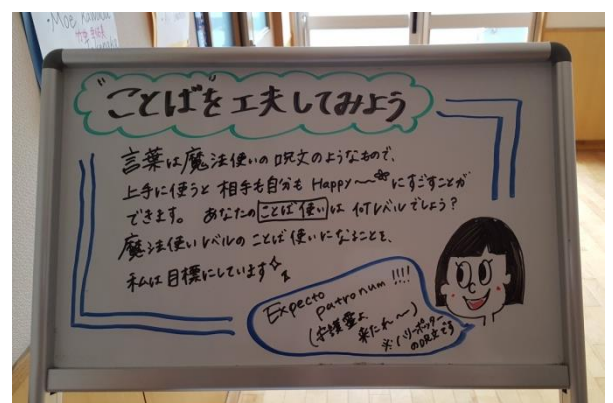 Moe Kawada
"ことば"を工夫してみよう
言葉は魔法使いの呪文のようなもので、
上手に使うと相手も自分もHappy〜にすごすことが
できます。 あなたのことば使いは何レベルでしょう?
魔法使いレベルのことば使いになることを、
私は目標にしています
Expecto
patronum !!!!
(守護霊よ、
来たれ〜)
※ハリーポッター
の呪文です